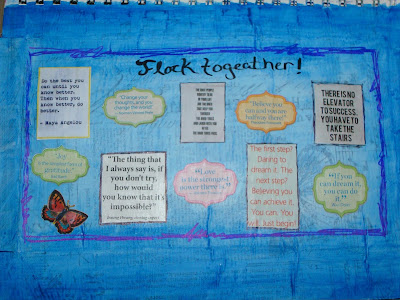 Flock togeather!
Do the best you
can until you
know better.
Then when you
know better, do
better.
- Maya Angelou
"Change your
thoughts, and you
change the world"
THERE IS NO
ELEVATOR
TO SUCCESS.
YOU HAVE TO
TAKE THE
STAIRS
"Believe you
can and you are
halfway there"
"Joy
is the simplest form of
gratitude"
"The thing that
I always say is, if
you don't try,
how would
you know that it's
impossible?"
"Love
is the strongest
power there is"
The first step?
Daring to
dream it. The
next step?
Believing you
can achieve it.
You can. You
will. Just begin!
"If you
can dream it, you
can do it"